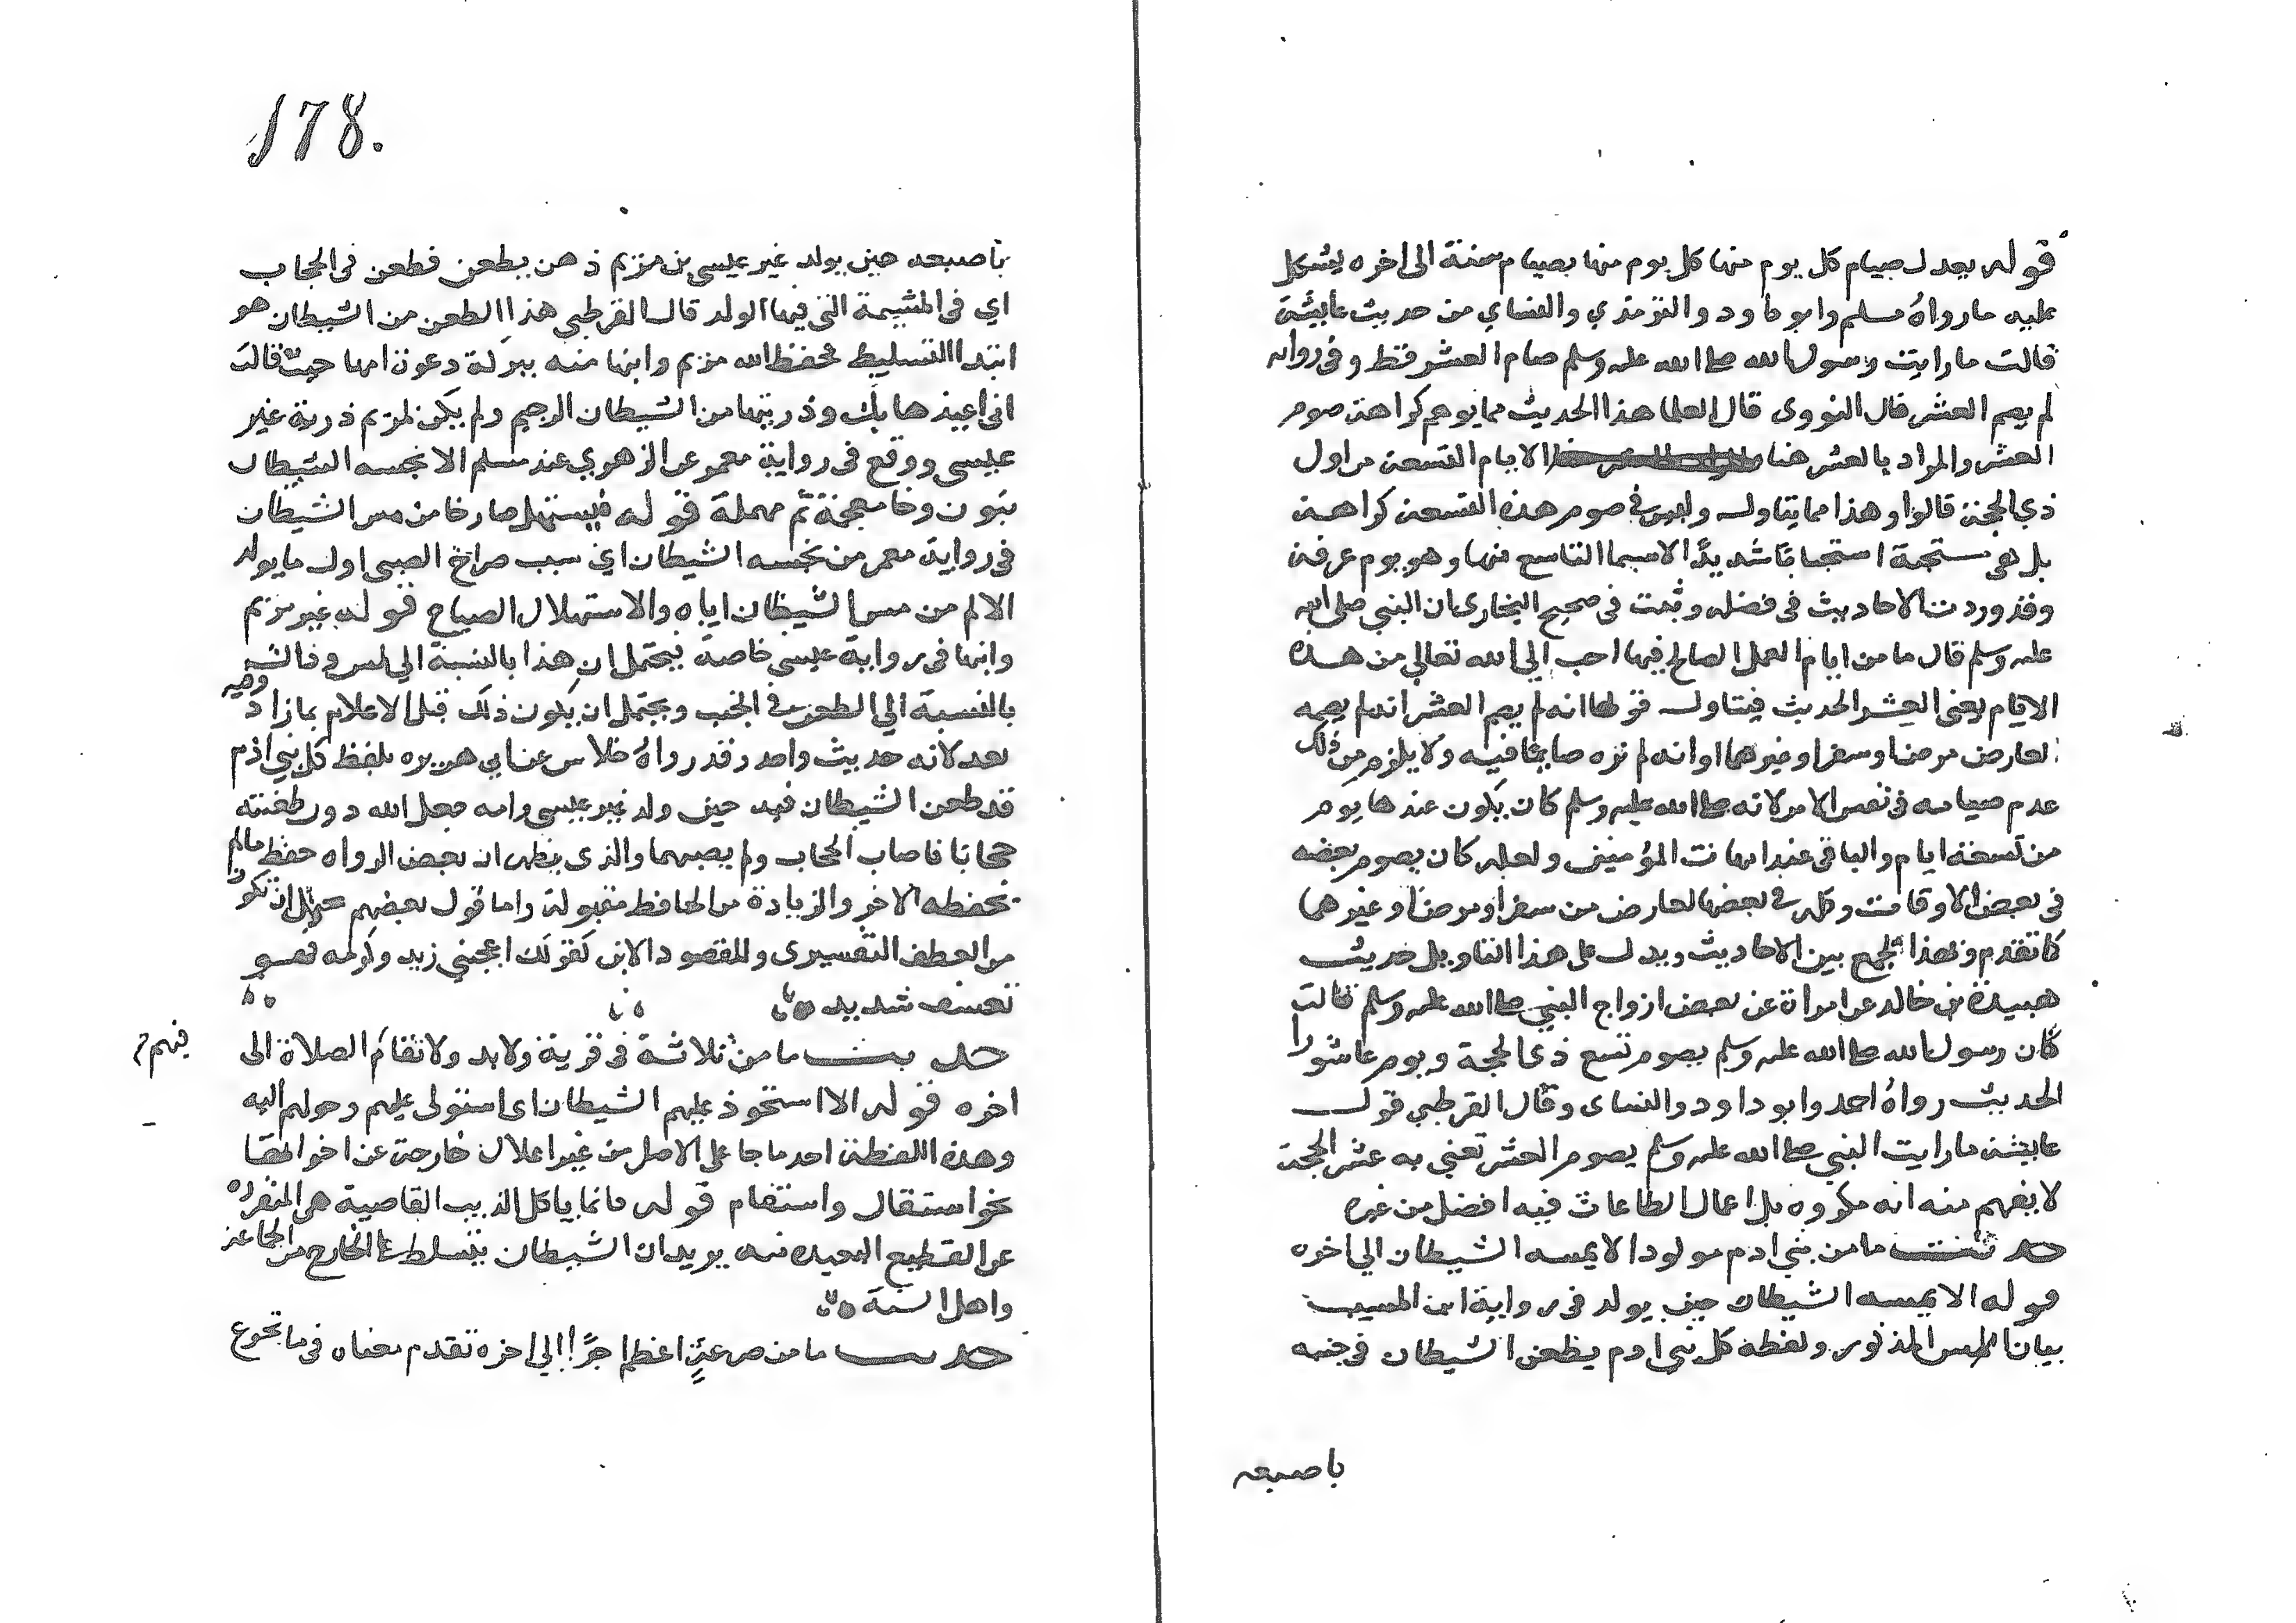 قوله يعدل صيام كل يوم منها كل يوم منها بصيام سنة الى اخره يشكل
عليه ما رواه مسلم وابو داود والترمذي والنساي من حديث عايشة
قالت ما رايت رسول الله صلى الله عليه وسلم صام العشر قط وفي رواية
لم يصم العشر قال النووى قال العلما هذا الحديث مما يوهم كراهة صوم
العشر والمراد بالعشر هنا الايام التسعة من اول
ذي الحجة قالوا وهذا مما يتاول وليس في صوم هذه التسعة كراهة
بل هي مستحبة استحبابا شديدًا لاسيما التاسع منها وهو يوم عرفة
وقد وردت الاحاديث في فضله وثبت في صحيح البخاري ان النبي صلى الله
عليه وسلم قال ما من ايام العمل الصالح فيها احب الى الله تعالي من هذه
الايام يعني العشر الحديث فيتاول قولها انه لم يصم العشر انه لم يصمه
لعارض مرض او سفر او غيرهما او انه لم تره صايما فيه ولا يلزم من ذلك
عدم صيامه في نفس الامر لانه صلى الله عليه وسلم كان يكون عندها يوم
من تسعة ايام والباقي عند امهات المؤمنين ولعله كان يصوم بعضه
في بعض الاوقات وكله في بعضها لعارض من سفر او مرض او غيرهما
كما تقدم وبهذا يجمع بين الاحاديث ويدل على هذا التاويل حديث
هنيدة بن خالد عن امراة عن بعض ازواج النبي صلى الله عليه وسلم قالت
كان رسول الله صلى الله عليه وسلم يصوم تسع ذي الحجة ويوم عاشورا
الحديث رواه احمد وابو داود والنساى وقال القرطبي قول
عايشة ما رايت النبي صلى الله عليه وسلم يصوم العشر تعني به عشر الحجة
لا يفهم منه انه مكروه بل اعمال الطاعات فيه افضل من غيره
حديث ما من بني ادم مولود الا يمسه الشيطان الي اخره
قوله الا يمسه الشيطان حين يولد في رواية ابن المسيب
بيان المس المذكور ولفظه كل بني ادم يطعن الشيطان في جنبه
باصبعه
178.
باصبعه حين يولد غير عيسى بن مريم ذهب يطعن فطعن في الحجاب
اي في المشيمة التي فيها الولد قال القرطبي هذا الطعن من الشيطان هو
ابتدا التسليط فحفظ الله مريم وابنها منه ببركة دعوة امها حيث قالت
اني اعيذها بك وذريتها من الشيطان الرجيم ولم يكن لمريم ذرية غير
عيسى ووقع في رواية معمر عن الزهري عند مسلم الا نخسه الشيطان
بنون وخا معجمة ثم مهملة قوله فيستهل صارخا من مس الشيطان
في رواية معمر من نخسه الشيطان اي سبب صراخ الصبي اول ما يولد
الالم من مس الشيطان اياه والاستهلال الصياح قوله غير مريم
وابنها في رواية عيسى خاصة فيحتمل ان هذا بالنسبة الي المس وذاك
بالنسبة الي الطعن في الجنب ويحتمل ان يكون ذلك قبل الاعلام بما زاد وفيه
بعد لانه حديث واحد وقد رواه خلاس عن ابي هريره بلفظ كل بني ادم
قد طعن الشيطان فيه حين ولد غير عيسى وامه جعل الله دون طعنته
حجابا فاصاب الحجاب ولم يصبهما والذى يظهر ان بعض الرواه حفظ ما لم
يحفظه الاخر والزيادة من الحافظ مقبولة واما قول بعضهم يحتمل ان تكون
من العطف التفسيرى والمقصود الابن كقولك اعجبني زيد وكرمه فهو
تعسف شديد
حديث ما من ثلاثة في قرية ولا بدو لا تقام الصلاة الى
فيهم
اخره قوله الا استحوذ عليهم الشيطان اى استولى عليهم وحولهم اليه
وهذه اللفظة احد ما جا على الاصل من غير اعلال خارجة عن اخواتها
نحو استقال واستقام قوله فانما ياكل الذيب القاصية هي المنفرده
عن القطيع البعيده منه يريد ان الشيطان يتسلط على الخارج من الجماعة
واهل السنة
حديث ما من جرعة اعظم اجرًا الي اخره تقدم معناه في ما تجرع